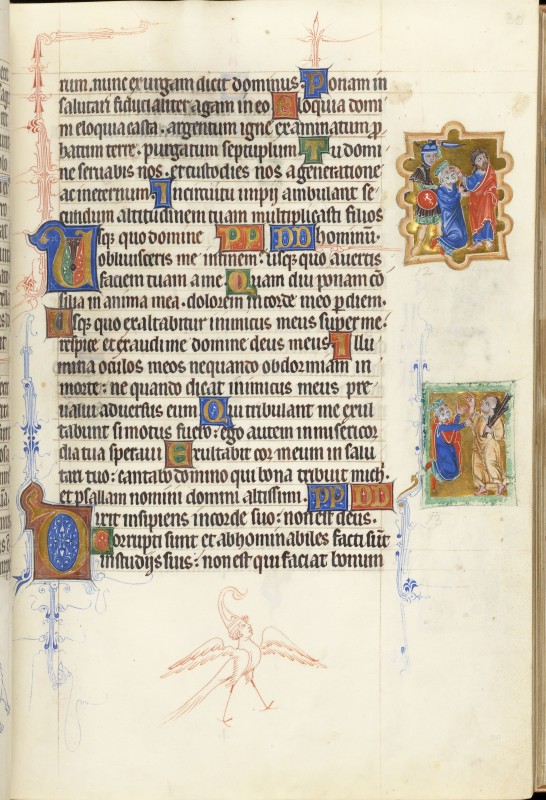 rum. nunc exurgam dicit dominus. Ponam in
salutari fiducialiter agam in eo Eloquia domi
ni eloquia casta. argentum igne examinatum p
batum terre. purgatum septuplum. Tu domi
ne servabis nos. et custodies nos a generatione
ac ineternum. In circuitu impii ambulant se
cundum altitudinem tuam multiplicasti filios
Usq quo domine PP DD hominu.
obliuisceris me infinem. usq quo auertis
faciem tuam a me Quam diu ponam co
silia in anima mea. dolorem incorde meo p diem.
Usq quo exaltabitur inimicus meus super me.
respice et exaudi me domine deus meus Illu
mina oculos meos nequando obdormiam in
morte: ne quando dicat inimicus meus pre
ualui aduersus eum Qui tribulant me exul
tabunt si motus fuero: ego autem in misericor
dia tua speraui Exultabit cor meum in salu
tari tuo: cantabo domino qui bona tribuit mich
et psallam nomini domini altissimi. PP DD
Dixit insipiens incorde suo: non est deus.
Corrupti sunt et abhominabiles facti sunt
instudiis suis: non est qui faciat bonum
12
13